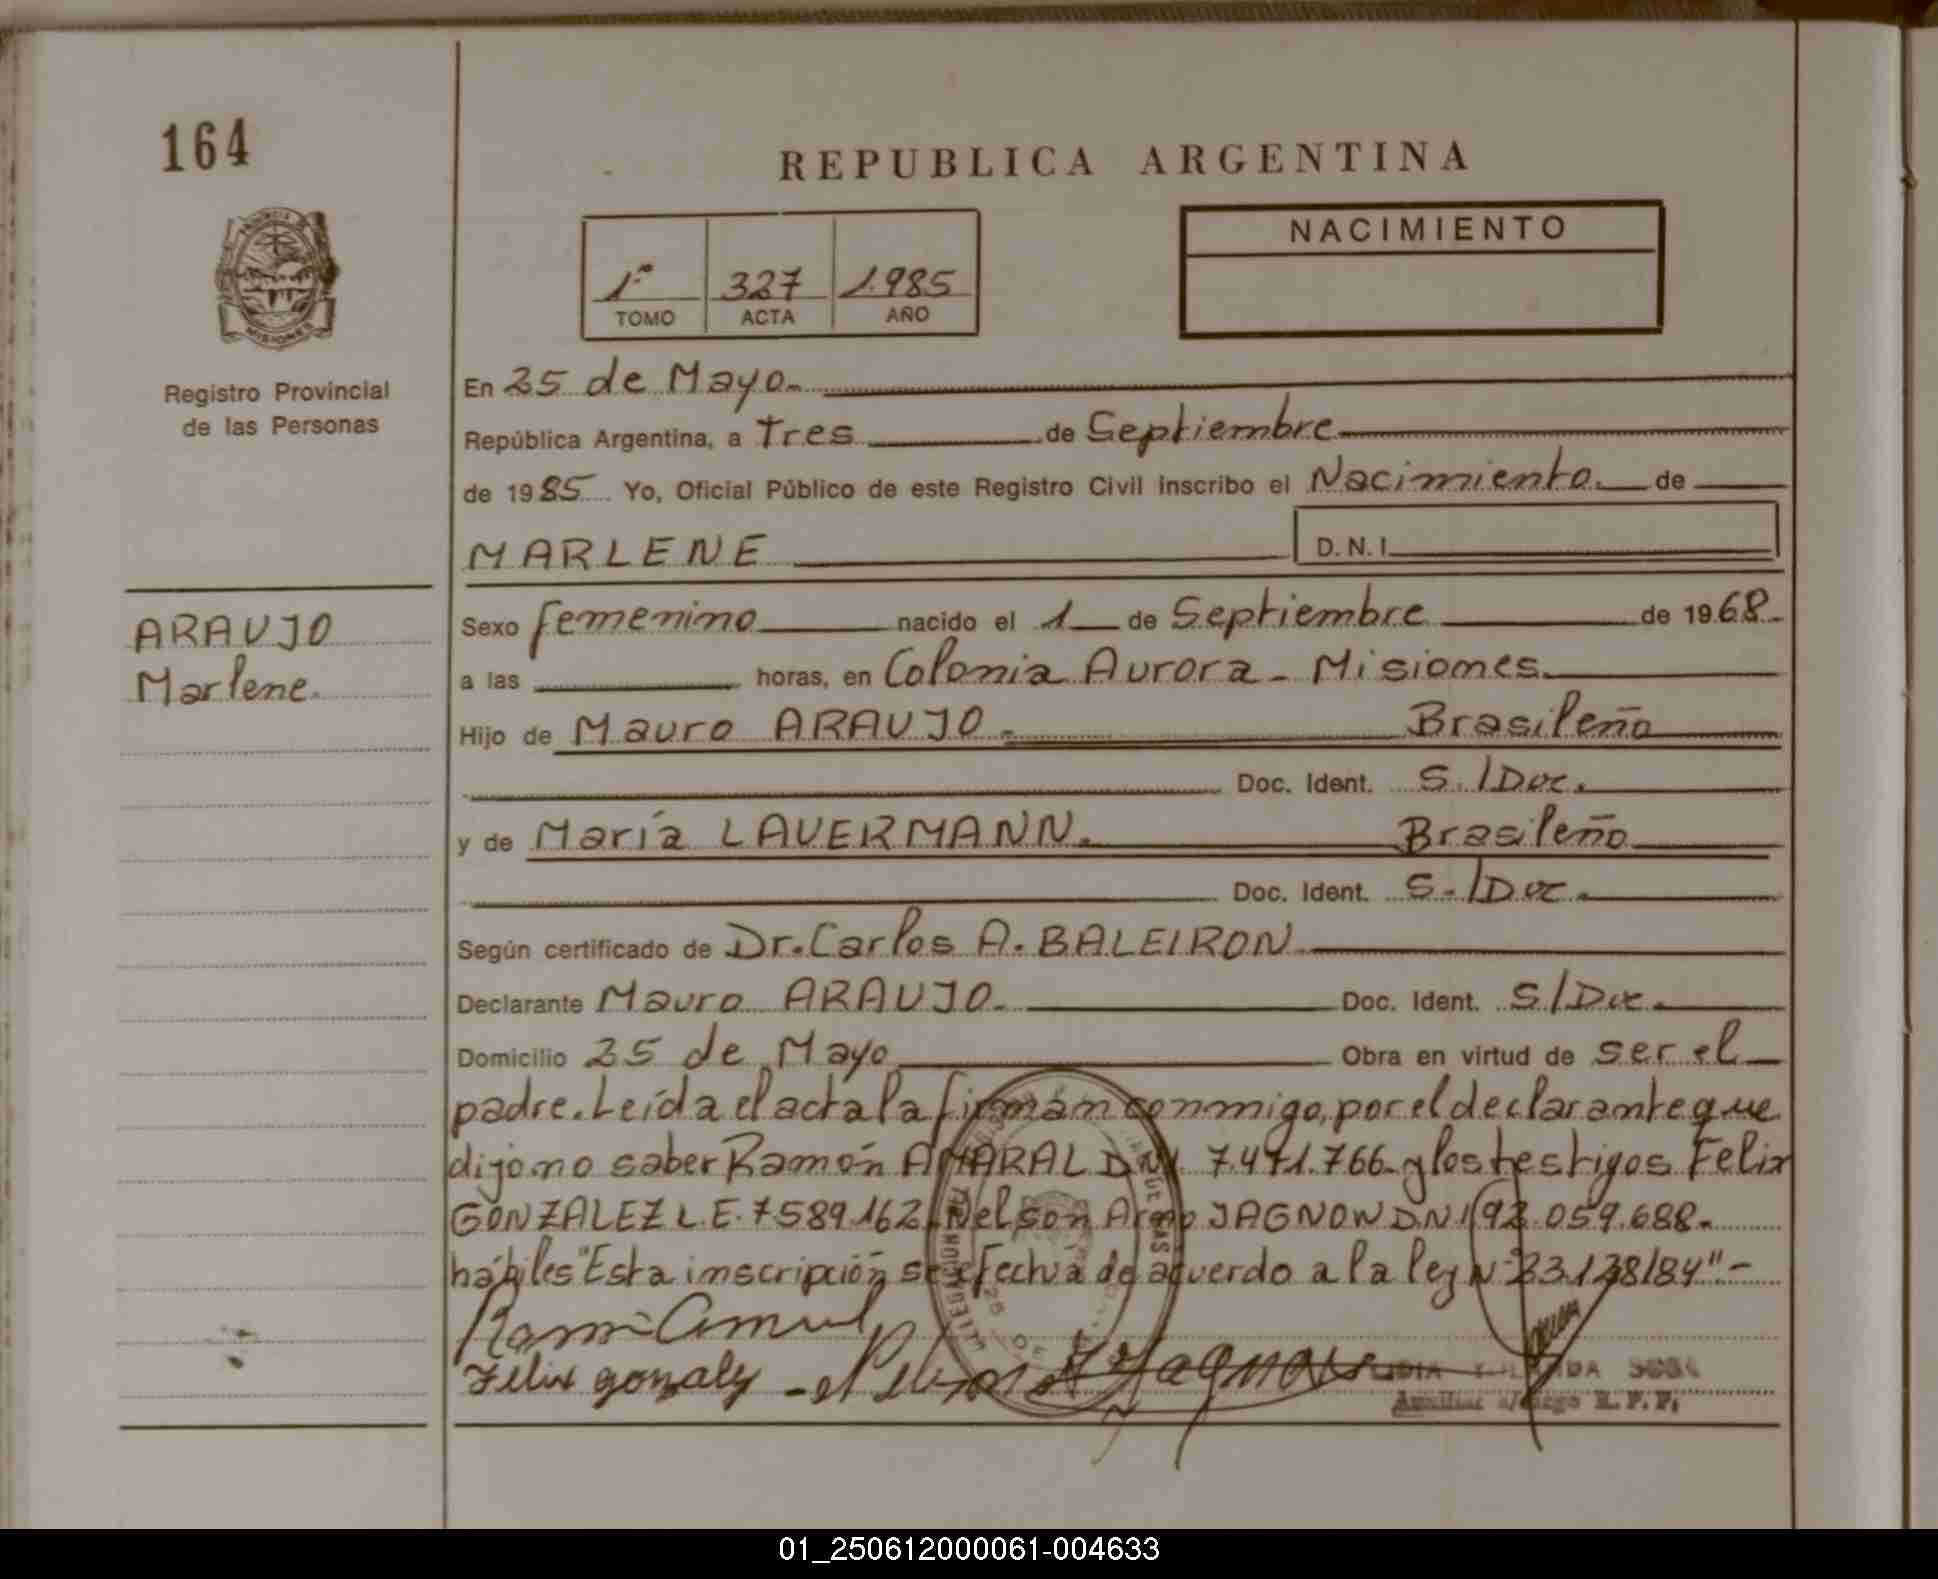 164
REPUBLICA ARGENTINA
NACIMIENTO
1º 327 1.985
TOMO ACTA AÑO
Registro Provincial
de las Personas
En 25 de Mayo.
República Argentina, a tres de Septiembre
de 1985 Yo, Oficial Público de este Registro Civil inscribo el Nacimiento. de
MARLENE D.N.I.
ARAUJO
Marlene.
Sexo femenino nacido el 1 de Septiembre de 1968.
a las horas, en Colonia Aurora - Misiones.
Hijo de Mauro ARAUJO. Brasileño
Doc. Ident. S./Doc.
y de María LAUERMANN. Brasileño
Doc. Ident. S./Doc.
Según certificado de Dr. Carlos A. BALEIRON
Declarante Mauro ARAUJO. Doc. Ident. S/Doc.
Domicilio 25 de Mayo Obra en virtud de ser el
padre. Leída el acta la firman conmigo, por el declarante que
dijo no saber Ramón AMARAL DNI. 7.471.766 y los testigos Felix
GONZALEZ L.E. 7589.162 Nelson JAGNOW DNI 92.059.688.
hábiles "Esta inscripción se efectua de acuerdo a la ley Nº 23.128/84" -
Felix gonzalez
Auxiliar R. P. P.
01_250612000061-004633